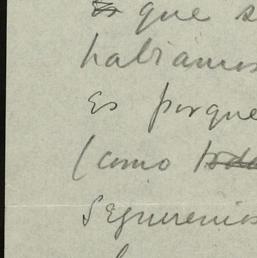 que s
habiamos
Es porque
(como
Seguremos